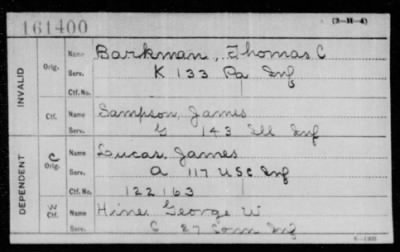 161400
(3-H-4)
INVALID
Orig. Name Barkman, Thomas C
Serv. K 133 Pa Inf
Ctf. No.
Ctf. Name Sampson, James
Serv. G 143 Ill Inf
DEPENDENT
C Orig. Name Lucas, James
Serv. A 117 USC Inf
Ctf. No. 122163
W Ctf. Name Hine George W
Serv. C 27 Conn Inf